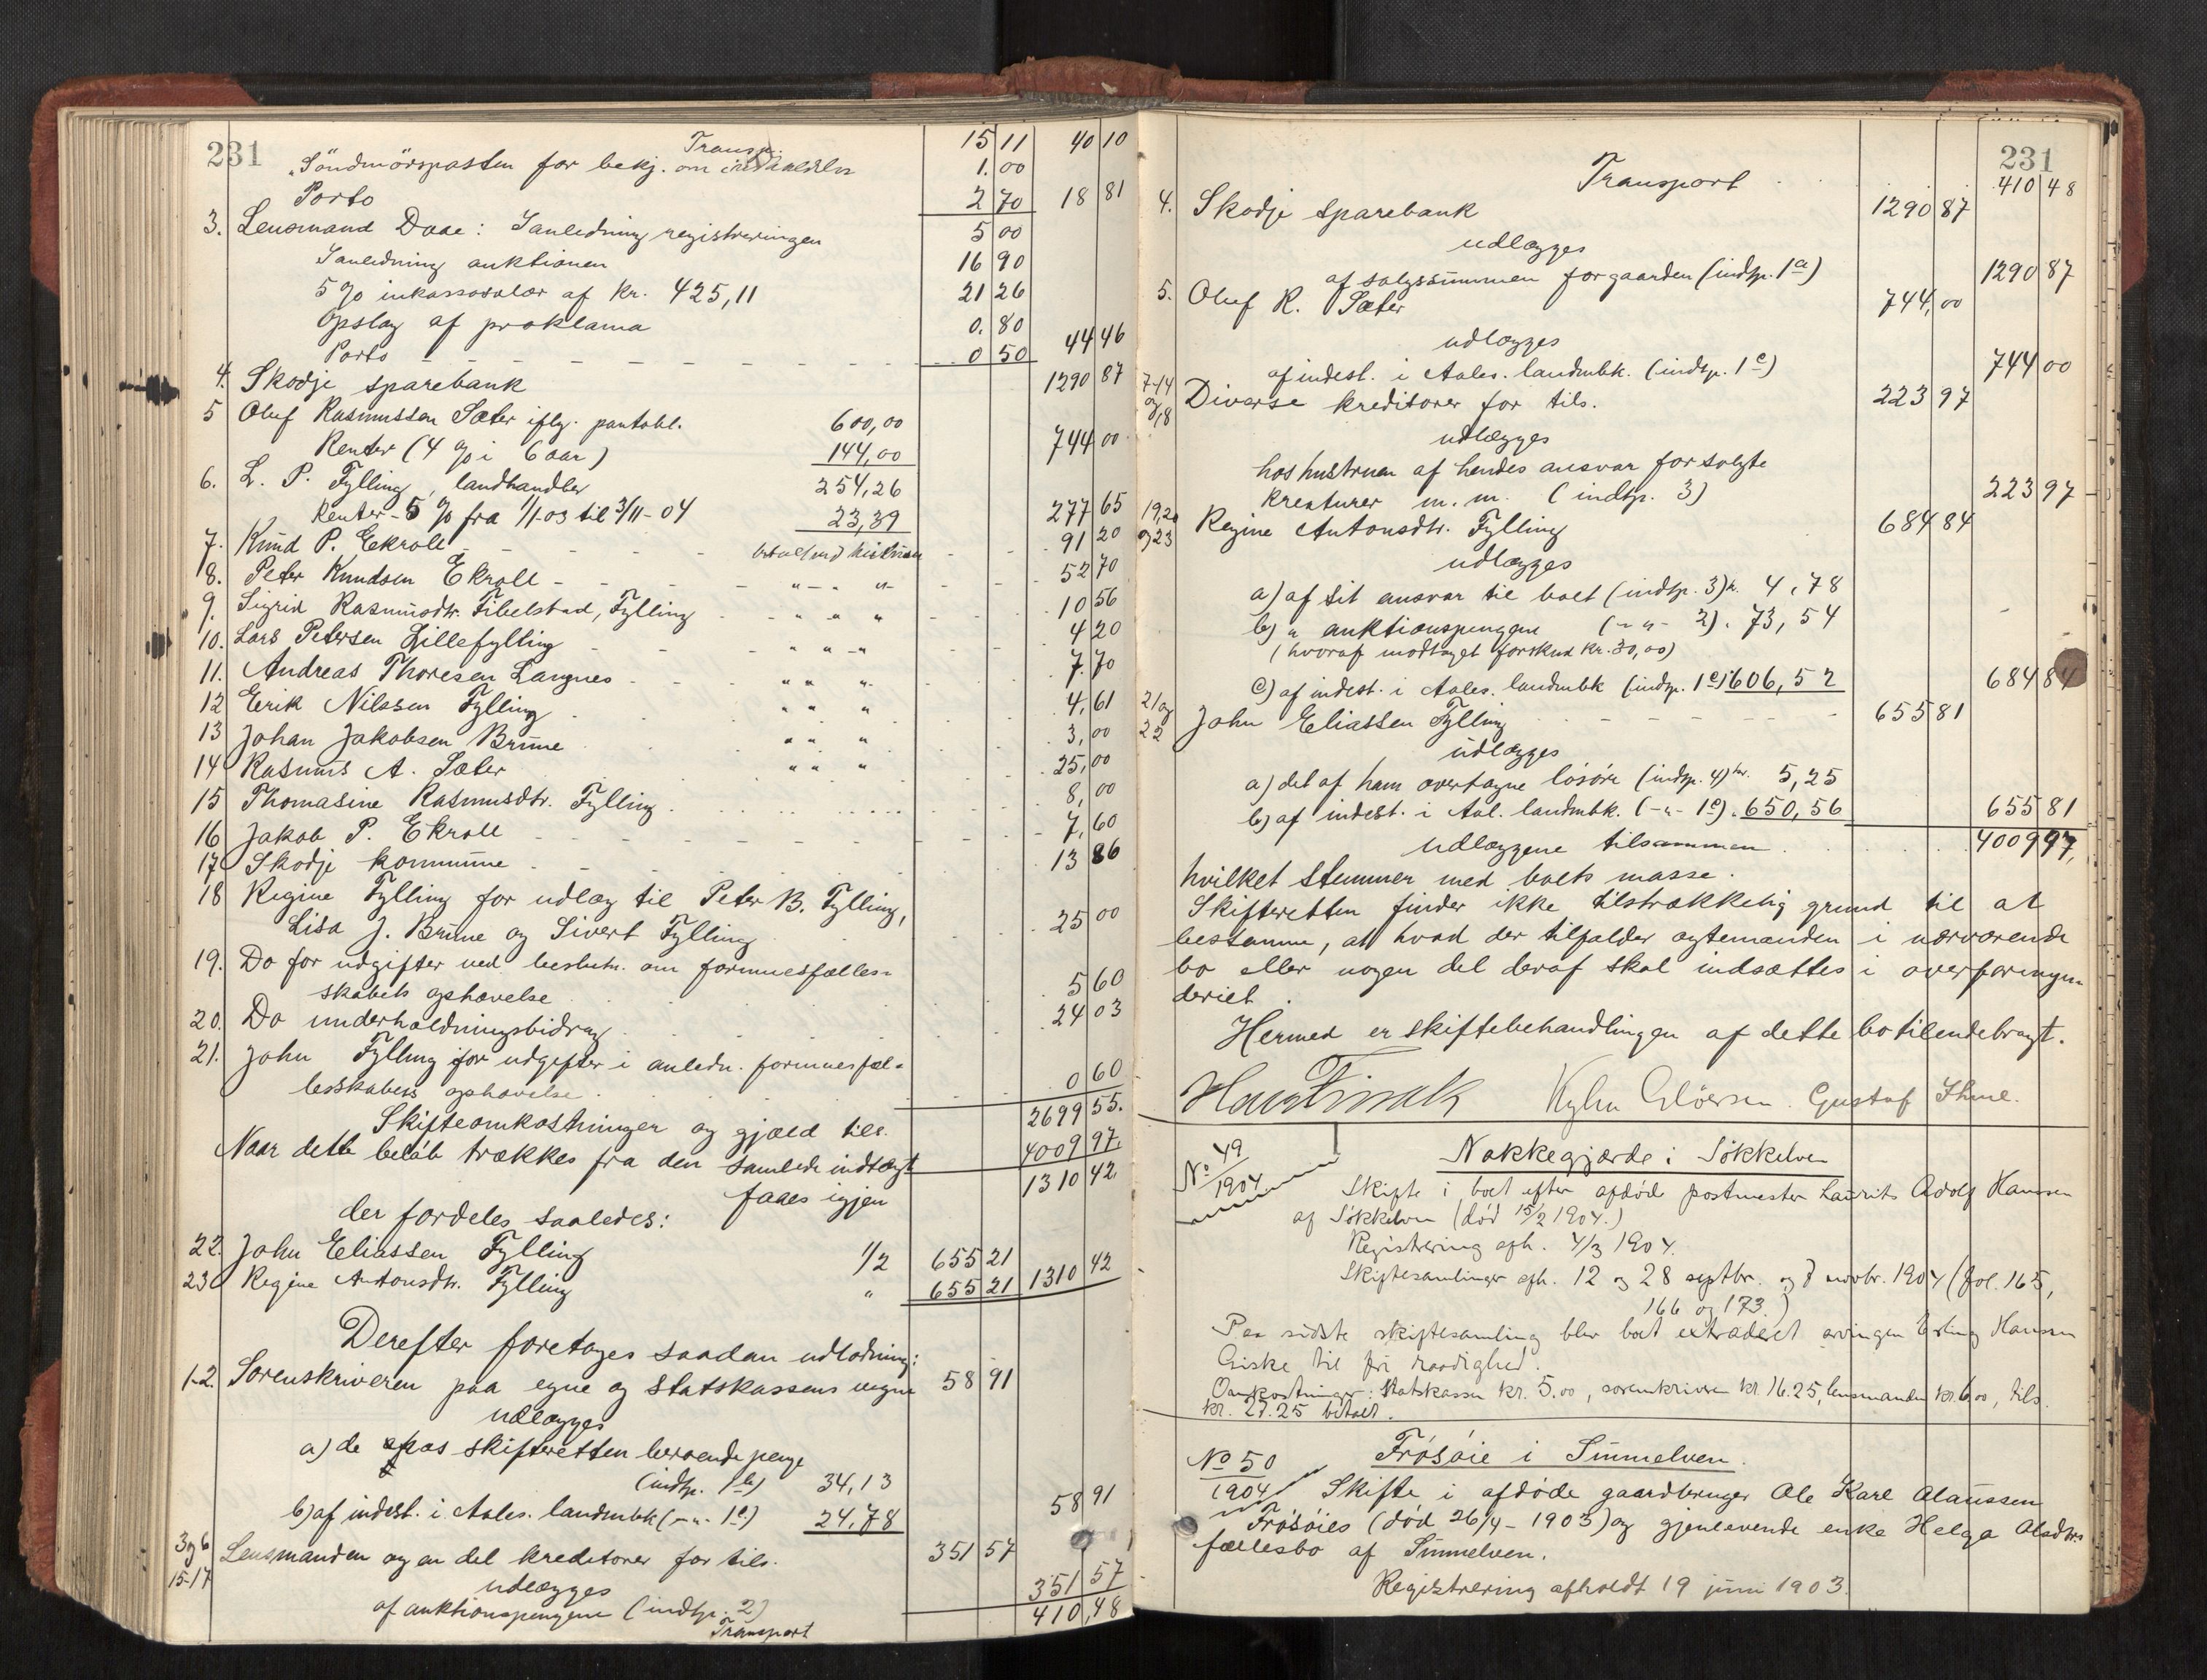 231
Transp. 15 11 40 10
"Söndmörsposten for bekj. om 1.00
Porto 2 70 18 81
3. Lensmand Daae: I anledning registreringen 5 00
I anledning auktionen 16 90
5 % inkassosalær af kr. 425,11 21 26
Opslag af proklama 0.80
Porto 0 50 44 46
4. Skodje sparebank 1290 87
5 Oluf Rasmussen Sæter iflg. pantobl. 600,00
Renter (4 % i 6 aar) 144,00 744 00
6. L. P. Fylling, landhandler 254,26
Renter - 5 % fra 1/1-03 til 3/11-04 23,39 277 65
7. Knud P. Ekroll 91 20
8. Peter Knudsen Ekroll - " - " - 52 70
9. Sigrid Rasmusdtr. Fibelstad, Fylling " " " 10 56
10. Lars Petersen Lillefylling " " " 4 20
11. Andreas Thoresen Langnes " " " 7.70
12 Erik Nilssen Fylling " " " 4,61
13 Johan Jakobsen Brune " " " 3,00
14 Rasmus A. Sæter " " " 25,00
15 Thomasine Rasmusdtr. Fylling 8,00
16 Jakob P. Ekroll 7,60
17 Skodje kommune 13 86
18 Regine Fylling for udlæg til Peter B. Fylling,
Lisa J. Brune og Sivert Fylling 25 00
19. Do for udgifter ved beslutn. om formuesfælles-
skabets ophævelse 5 60
20. Do underholdningsbidrag 24 03
21. John Fylling for udgifter i anledn. formuesfæl-
lesskabets ophævelse 0 60
Skifteomkostninger og gjæld tils. 2699 55.
Naar dette beløb trækkes fra den samlede indtægt 4009 97.
faaes igjen 1310 42
der fordeles saaledes:
22. John Eliassen Fylling 1/2 655 21
23 Regine Antonsdtr. Fylling " 655 21 1310 42
Derefter foretages saadan udlodning:
1-2. Sorenskriveren paa egne og statskassens vegne 58 91
udlægges
a) de hos skifteretten beroende penge
(indtp. 1 b) 34,13
b) af indest. i Aales. landmbk (-"- 1 c) 24,78 58 91
3 og 6 Lensmanden og en del kreditorer for tils. 351 57
15-17 udlægges
af auktionspengene (indtp. 2) 351 57
Transport 410,48
231
Transport 410 48
4. Skodje sparebank 1290 87
udlægges
af salgssummen for gaarden (indtp. 1 a) 1290 87
5. Oluf R. Sæter 744,00
udlægges
af indest. i Aales. landmbk. (indtp. 1 c) 744 00
7-14 og 18 Diverse kreditorer for tils. 223 97
udlægges
hos hustruen af hendes ansvar for solgte
kreaturer m. m. (indtp. 3) 223 97
19,20 og 23 Regine Antonsdtr. Fylling 684 84
udlægges
a) af sit ansvar til boet (indtp. 3) kr. 4,78
b) " auktionspengene (-"- 2) . 73,54
(hvoraf modtaget forskud kr. 30,00)
c) af indest. i Aales. landmbk (indtp. 1 c) 606,52 684 84
21 og 22 John Eliassen Fylling 655 81
udlægges
a) det af ham overtagne løsøre (indtp. 4) kr. 5,25
b) af indest. i Aal. landmbk. (-"- 1 c) . 650,56 655 81
udlæggene tilsammen 4009 97,
hvilket stemmer med boets masse.
Skifteretten finder ikke tilstrækkelig grund til at
bestemme, at hvad der tilfalder egtemanden i nærværende
bo eller nogen del deraf skal indsættes i overformyn-
deriet.
Hermed er skiftebehandlingen af dette bo tilendebragt.
Gustaf Ihme.
No 49/1904 Nakkegjærde i Søkkelven
Skifte i boet efter afdøde postmester Laurits Adolf Hanssen
af Søkkelven (død 15/2 1904.)
Registrering afh. 4/3 1904.
Skiftesamlinger afh. 12 og 28 septbr. og 8 novbr. 1904 (fol. 165,
166 og 173.)
Paa sidste skiftesamling blev boet extraderet arvingen Erling Hanssen
Giske til fri raadighed.
Omkostninger: Statskassen kr. 5.00, sorenskriveren kr. 16.25, lensmanden kr. 6.00, tils.
kr. 27.25 betalt.
No 50/1904 Frøsøie i Simmelven.
Skifte i afdøde gaardbruger Ole Karl Olaussen
Frøsøies (død 26/4 - 1903) og gjenlevende enke Helga Olsdtrs
fællesbo af Simmelven.
Registrering afholdt 19 juni 1903.